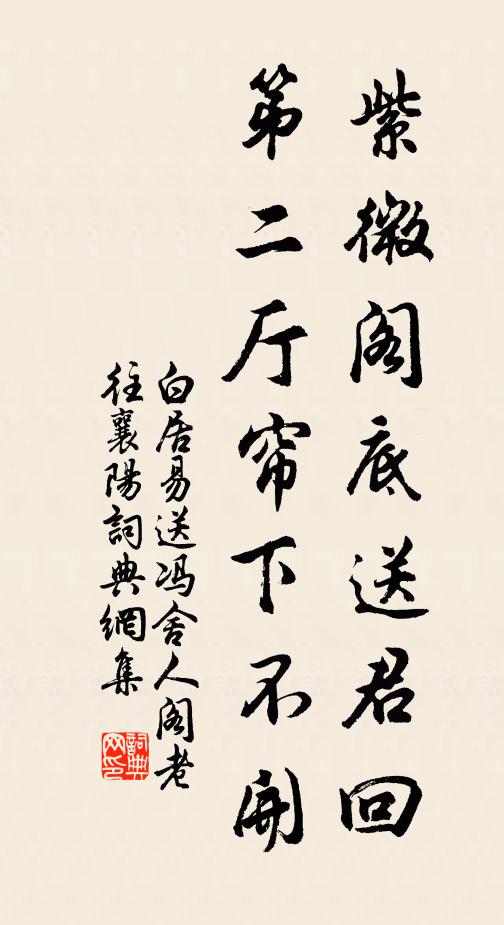 紫微阁底送君回
第二厅帘下不開
白居易送冯舍人阁老
往襄陽詞典網集
詞典
网印